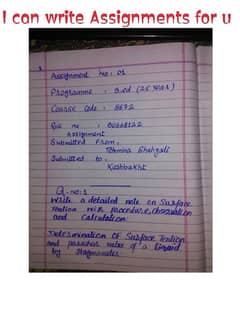 I can write Assignments for u
Assignment no: 01
Programme : B.ed (2.5 year)
Course Code : 8672
Assignment
Submitted From,
Submitted to.
Kashbakht
Q-no:1
Write a detailed note on Surface
Tention with procedure, observation
and Calculation:
Determination of Surface Tention
and parachor value of a liquid
by